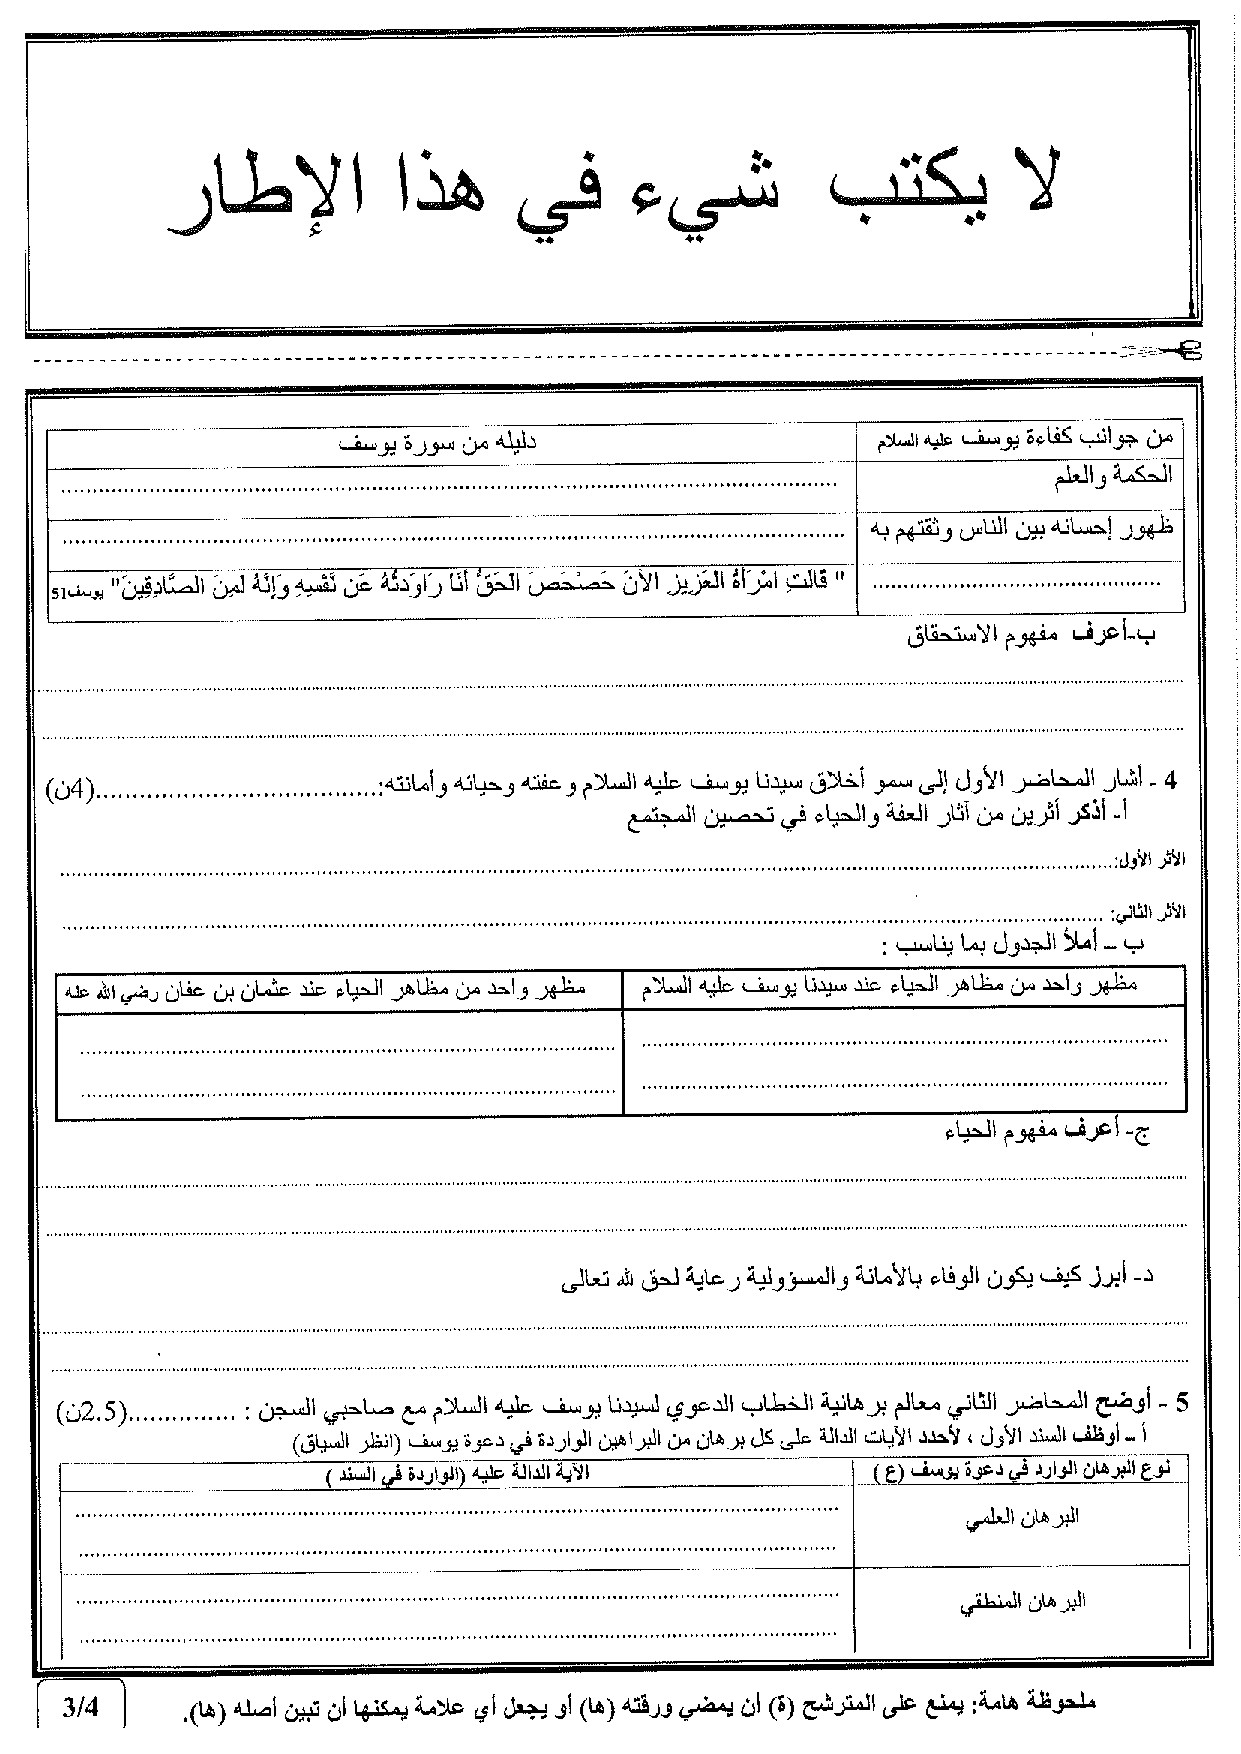 لا يكتب شيء في هذا الإطار
من جوانب كفاءة يوسف عليه السلام
دليله من سورة يوسف
الحكمة والعلم
..........
ظهور إحسانه بين الناس وثقتهم به
..........
..........
" قَالَتِ امْرَأَةُ العَزِيزِ الآنَ حَصْحَصَ الحَقُّ أَنَا رَاوَدتُّهُ عَن نَّفْسِهِ وَإِنَّهُ لَمِنَ الصَّادِقِينَ" يوسف51
ب-أعرف مفهوم الاستحقاق
..........
..........
4 - أشار المحاضر الأول إلى سمو أخلاق سيدنا يوسف عليه السلام وعفته وحيائه وأمانته:..........(4ن)
أ- أذكر أثرين من آثار العفة والحياء في تحصين المجتمع
الأثر الأول:..........
الأثر الثاني: ..........
ب – أملأ الجدول بما يناسب :
مظهر واحد من مظاهر الحياء عند سيدنا يوسف عليه السلام
مظهر واحد من مظاهر الحياء عند عثمان بن عفان رضي الله عنه
..........
..........
..........
..........
ج- أعرف مفهوم الحياء
..........
..........
د- أبرز كيف يكون الوفاء بالأمانة والمسؤولية رعاية لحق لله تعالى
..........
..........
5 - أوضح المحاضر الثاني معالم برهانية الخطاب الدعوي لسيدنا يوسف عليه السلام مع صاحبي السجن : ..........(2.5ن)
أ – أوظف السند الأول ، لأحدد الآيات الدالة على كل برهان من البراهين الواردة في دعوة يوسف (انظر السياق)
نوع البرهان الوارد في دعوة يوسف (ع )
الآية الدالة عليه (الواردة في السند )
البرهان العلمي
..........
..........
البرهان المنطقي
..........
..........
ملحوظة هامة: يمنع على المترشح (ة) أن يمضي ورقته (ها) أو يجعل أي علامة يمكنها أن تبين أصله (ها).
3/4